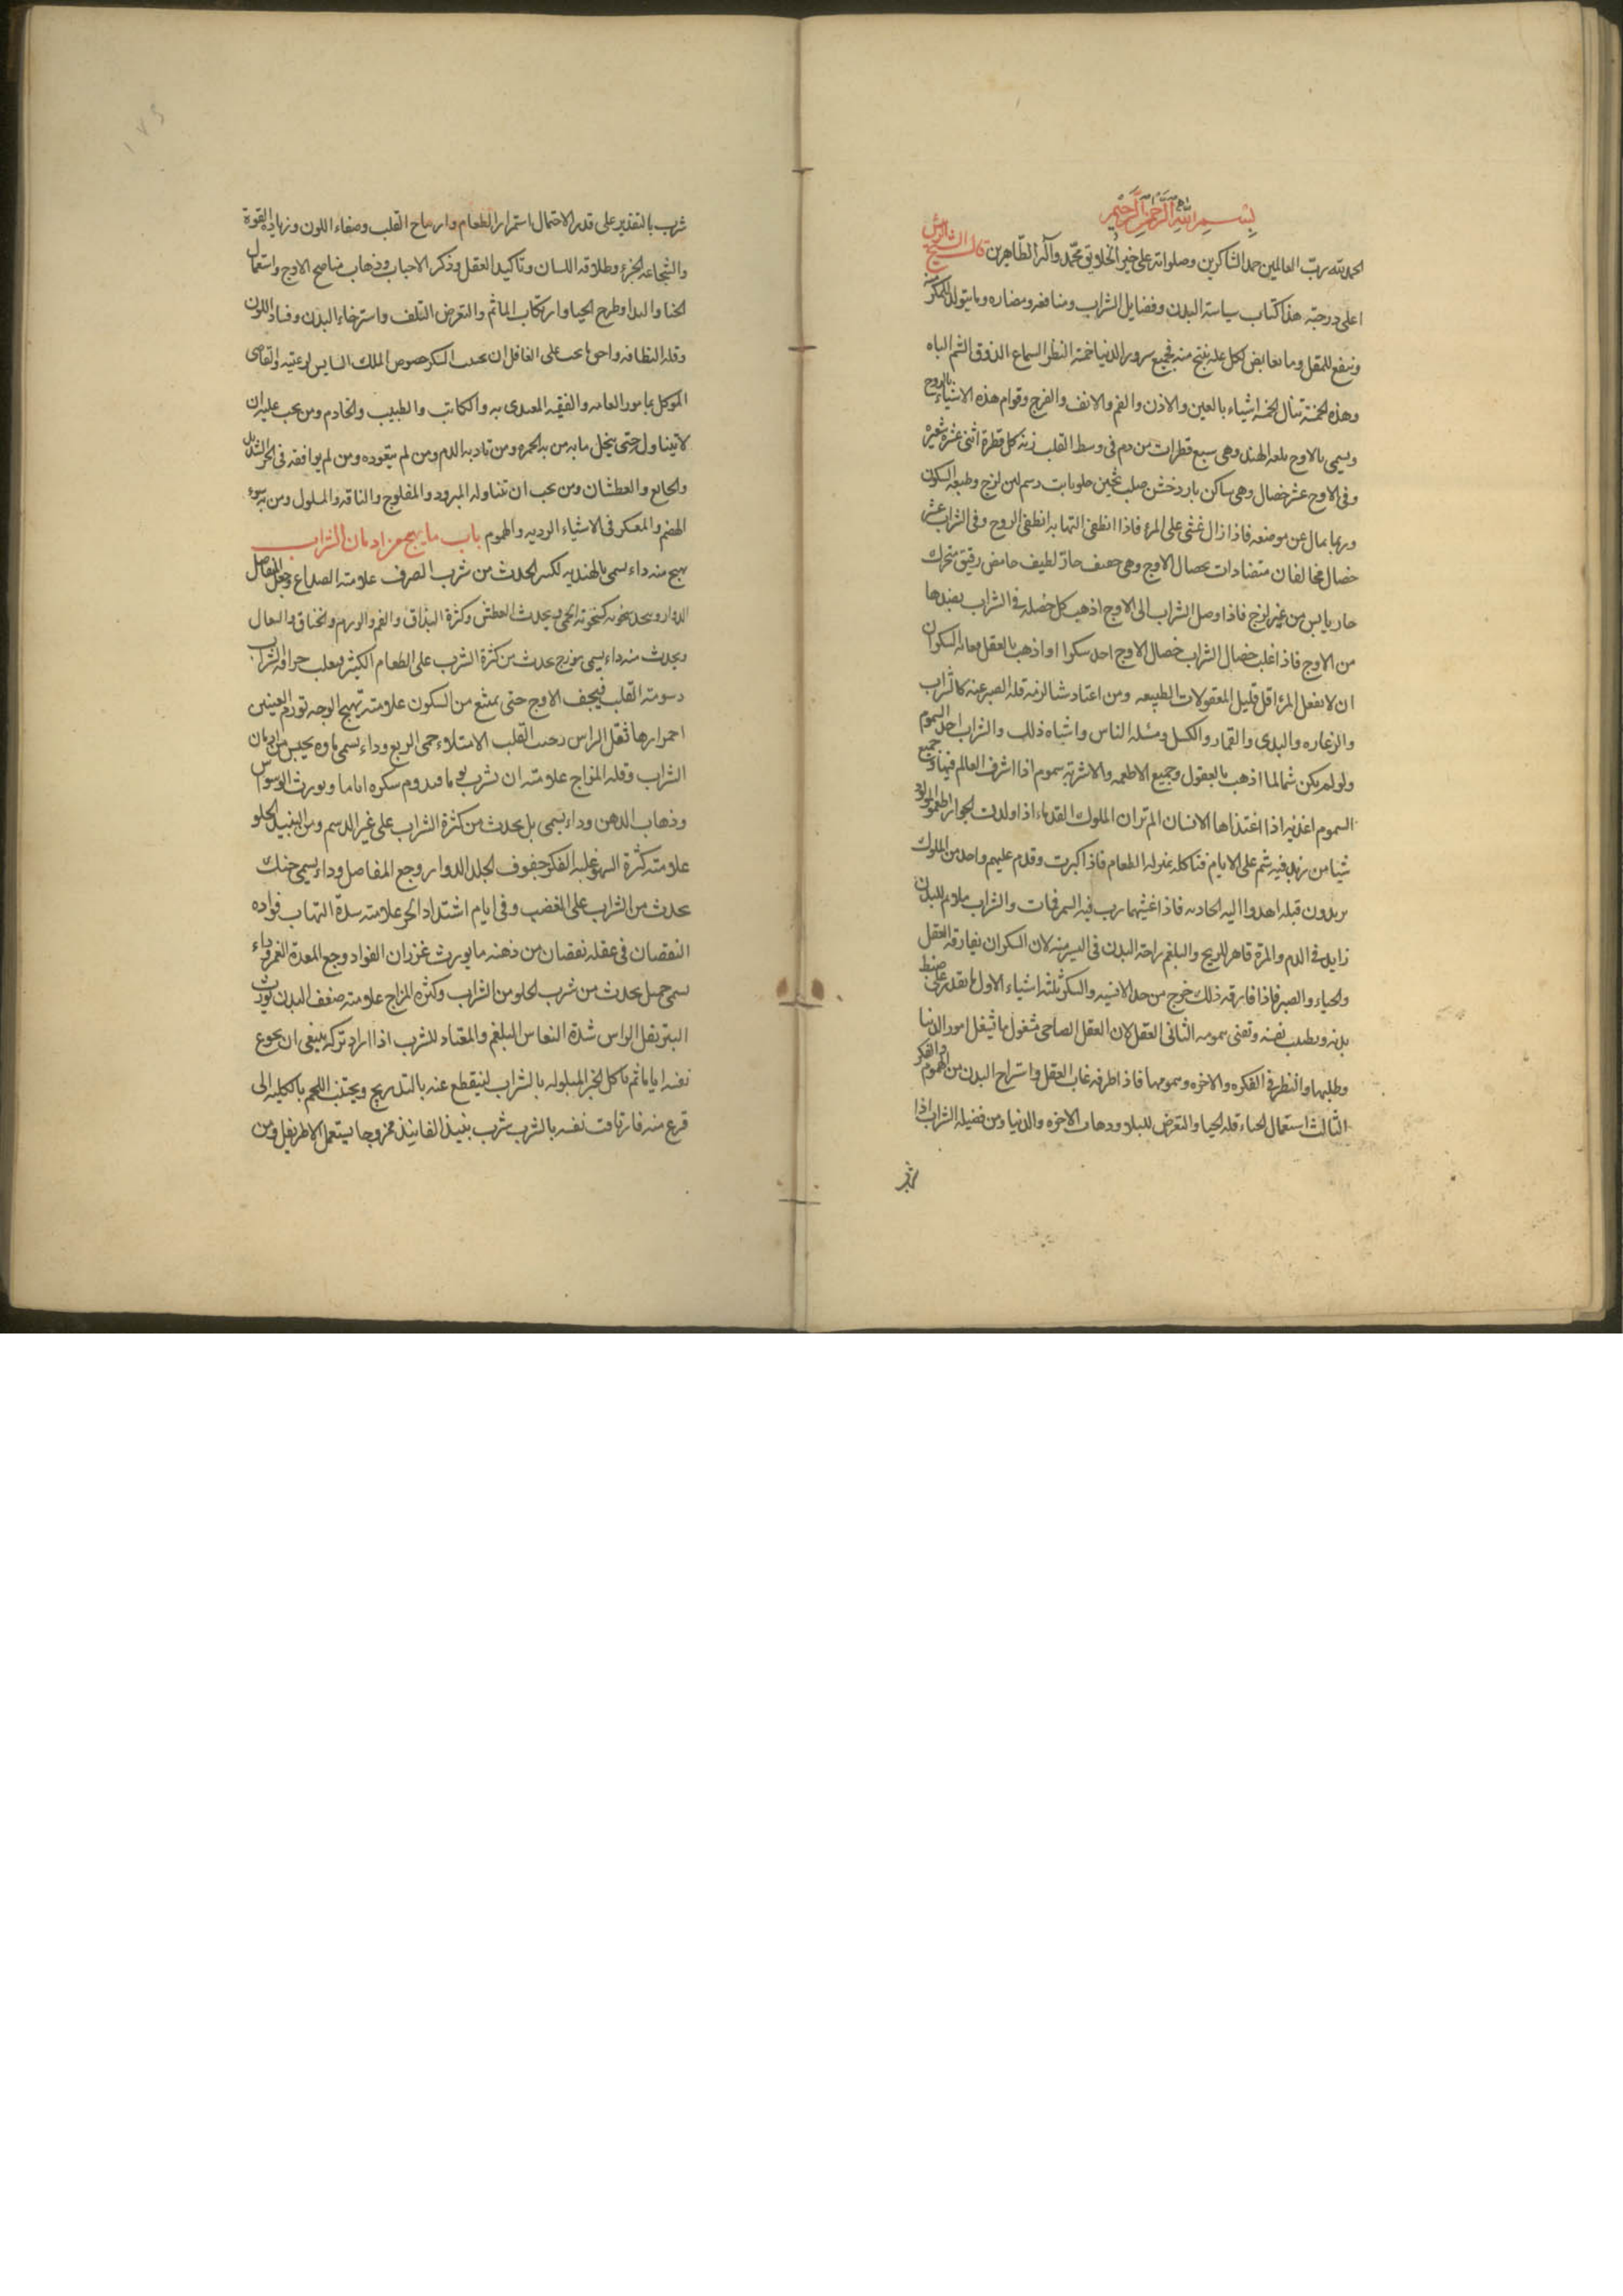 بِسْمِ اللهِ الرَّحْمنِ الرَّحِيمِ
الحمد لله رب العالمين حمد الشاكرين وصلواته على خير الخلايق محمد وآله الطاهرين قال الشيخ الرئيس
اعلى درجته هذا كتاب سياسة البدن وفضايل الشراب ومنافعه ومضاره وما يتولد للمكثر منه
وينفع للمقل وما لكل علة ينتج منه فجميع سرور الدنيا خمسة النظر السماع الذوق الشم الباه
وهذه الخمسة تنال بخمسة اشياء بالعين والاذن والفم والانف والفرج وقوام هذه الاشياء بالروح
ويسمى بالاوج بلغة الهند وهى سبع قطرات من دم فى وسط القلب زنة كل قطرة اثنى عشرة شعيرة
وفى الاوج عشر خصال وهى ساكن بارد خشن صلب ثخين حلو ثابت دسم لين لزج وطبعه السكون
وربما مال عن موضعه فاذا زال غشى على المرء فاذا انطفى التهابه انطفى الروح وفى الشراب عشر
خصال مخالفان متضادات بخصال الاوج وهى خفيف حاد لطيف حامض رقيق متحرك
حار يابس من غير لزج فاذا وصل الشراب الى الاوج اذهب كل خصلة فى الشراب بضدها
من الاوج فاذا غلب خصال الشراب خصال الاوج احد سكوا او اذهب بالعقل السكران
ان لا يفعل المرء اقل قليل المعقولات الطبيعه ومن اعتاد شيا لزمه قلة الصبر عنه كالشراب
والزعاره والقمار والكسل ومسئلة الناس واشباه ذلك والشراب احد السموم
ولو لم يكن شمالما اذهب بالعقول وجميع الاطعمه والاشربه سموم اذا اشرف العالم فيها وجميع
السموم اغذيه اذا اغتذاها الانسان الم تر ان الملوك القدماء اذا اولدت الجوار
شيا من فيه سم على الايام فتاكله بمنزلة الطعام فاذا كبرت وقدم عليهم واحد من الملوك
يريدون قبله اهدوا اليه الجاريه فاذا غشيها رب فيه السم فمات والشراب ملايم للبدن
زايد فى الدم والمرة قاهر للريح والبلغم راحة البدن فى اليسير منه لان السكران يفارقه العقل
والحياء والصبر فاذا فارقه ذلك خرج من حد الانسيه والسكر ثلثه اشياء الاول ما يقدر على ضبط
بدنه ويطيب نفسه وتفنى همومه الثانى العقل لان العقل الصاحى مشغول باشغل امور الدنيا
وطلبها والنظر فى الفكره والاخره وهمومها فاذا اطرفه غاب العقل واستراح البدن من الهموم والفكر
الثالث استعمال الخناء قلة الحيا والتعرض للبلاء وذهاب الاخره والدنيا ومن فضيلة الشراب اذا
شرب بالتقدير على قدر الاحتمال استمرار الطعام وارماح القلب وصفاء اللون وزيادة القوة
والشجاعه الجزء وطلاقة اللسان وتاكيد العقل وذكر الاحباب وذهاب الاوج واستعمال
الخنا والبذا وطرح الحيا وارتكاب الماثم والتعرض التلف واسترخاء البدن وفساد اللون
وقلة النظافه يجب على العاقل ان السكر خصوص الملك السايس لرعيته والقاضى
الموكل بامور العامه والفقيه المقتدى به والكاتب والطبيب والخادم ومن يجب عليه ان
لا يتناول حتى ينحل ما به من به الحمره ومن الدم ومن لم يتعوده ومن لم يوافقه فى الحر الشديد
والجايع والعطشان ومن يجب ان تتناوله المبرود والمفلوج والناقه والمسلول ومن به سوء
الهضم والمفكر فى الاشياء الرديه والهموم باب ما يهيج من ادمان الشراب
يهيج منه داء يسمى بالهنديه لكسر لحدث من شرب الصرف علامته الصداع وجع المفاصل
الدوار ويجد سخونه كسخونة الحمى ويحدث العطش وكثرة البزاق والغم والورم والخناق والسعال
ويحدث منه داء يسمى موزج يحدث من كثرة الشرب على الطعام الكثير فيغلب حرافة الشراب
دسومة القلب فيجف الاوج حتى يمتنع من السكون علامته تهيج الوجه تورم العينين
احمرارها ثقل الراس القلب الامتلاء حمى الربع وداء يسمى من ادمان
الشراب وقلة المزاج علامته ان شرب يوما فيدوم سكره اياما ويورث الوسواس
وذهاب الذهن وداء يسمى بل يحدث من كثرة الشراب على غير الدسم ومن النبيذ الحلو
علامته كثرة السهو غلبة الفكر جفوف الجلد الدوار وجع المفاصل وداء يسمى خنك
يحدث من الشراب على الغضب وفى ايام اشتداد الحر علامته شدة التهاب فواده
النقصان فى عقله نقصان من ذهنه ما يورث غزران الفواد وجع المعدة الغم وداء
يسمى حمل يحدث من شرب الحلو من الشراب وكثرة المزاج علامته ضعف البدن يورث
البتر ثقل الراس شدة النعاس البلغم والمعتاد للشرب اذا اراد تركه ينبغى ان يجوع
نفسه اياما ثم ياكل الخبز المبلوله بالشراب لينقطع عنه بالتدريج ويجتنب اللحم بالكليه الى
فرغ منه فان تاقت نفسه بالشرب شرب نبيذ الفانيذ ممزوجا يستعمل الاطريفل ومن